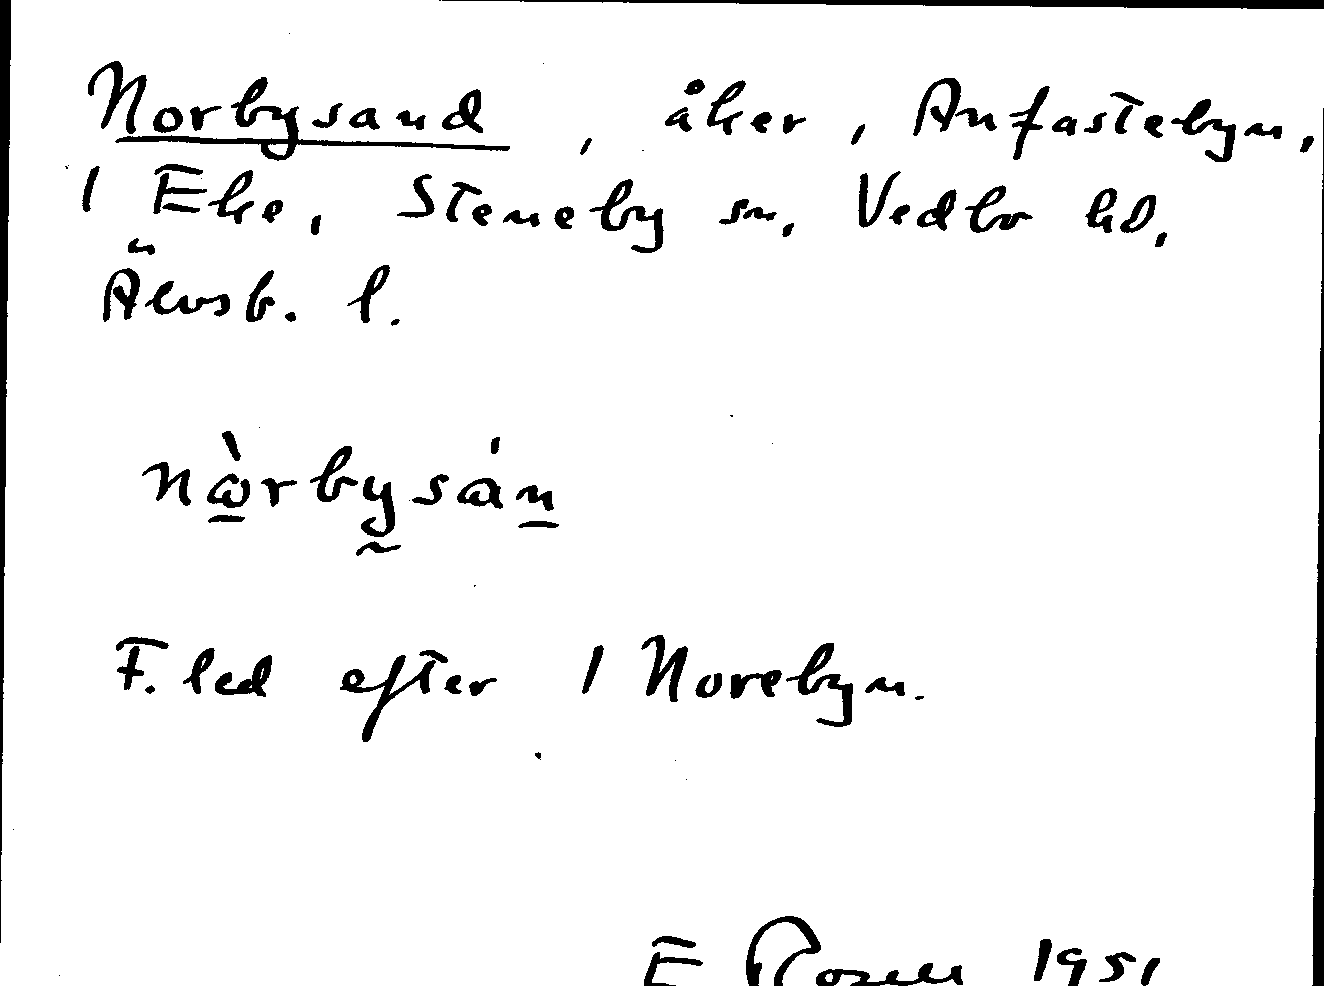 Norbysand, åker, Anfastebyn,
1 Eke, Steneby sn, Vedbo hd,
Älvsb. l.
nὰrbysán
F. led efter 1 Norebyn.
E Rosell 1951